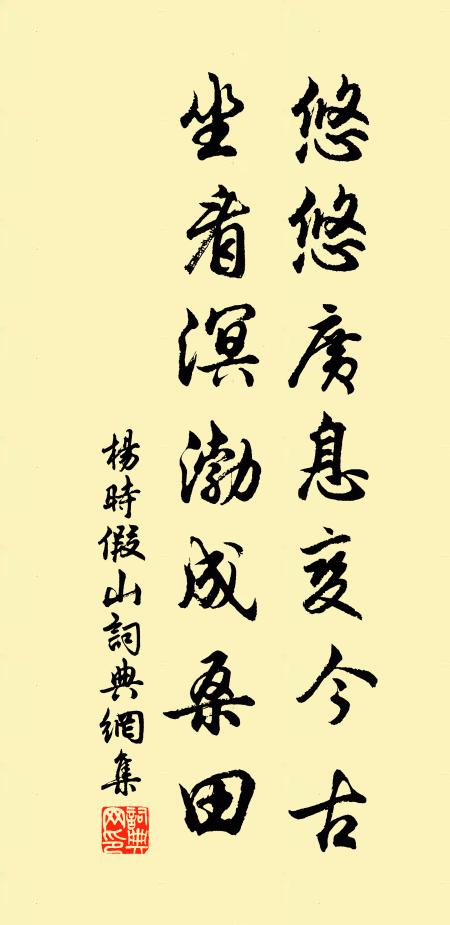 悠悠廣息变今古
坐看溟渤成桑田
楊時假山詞典網集
詞典网印